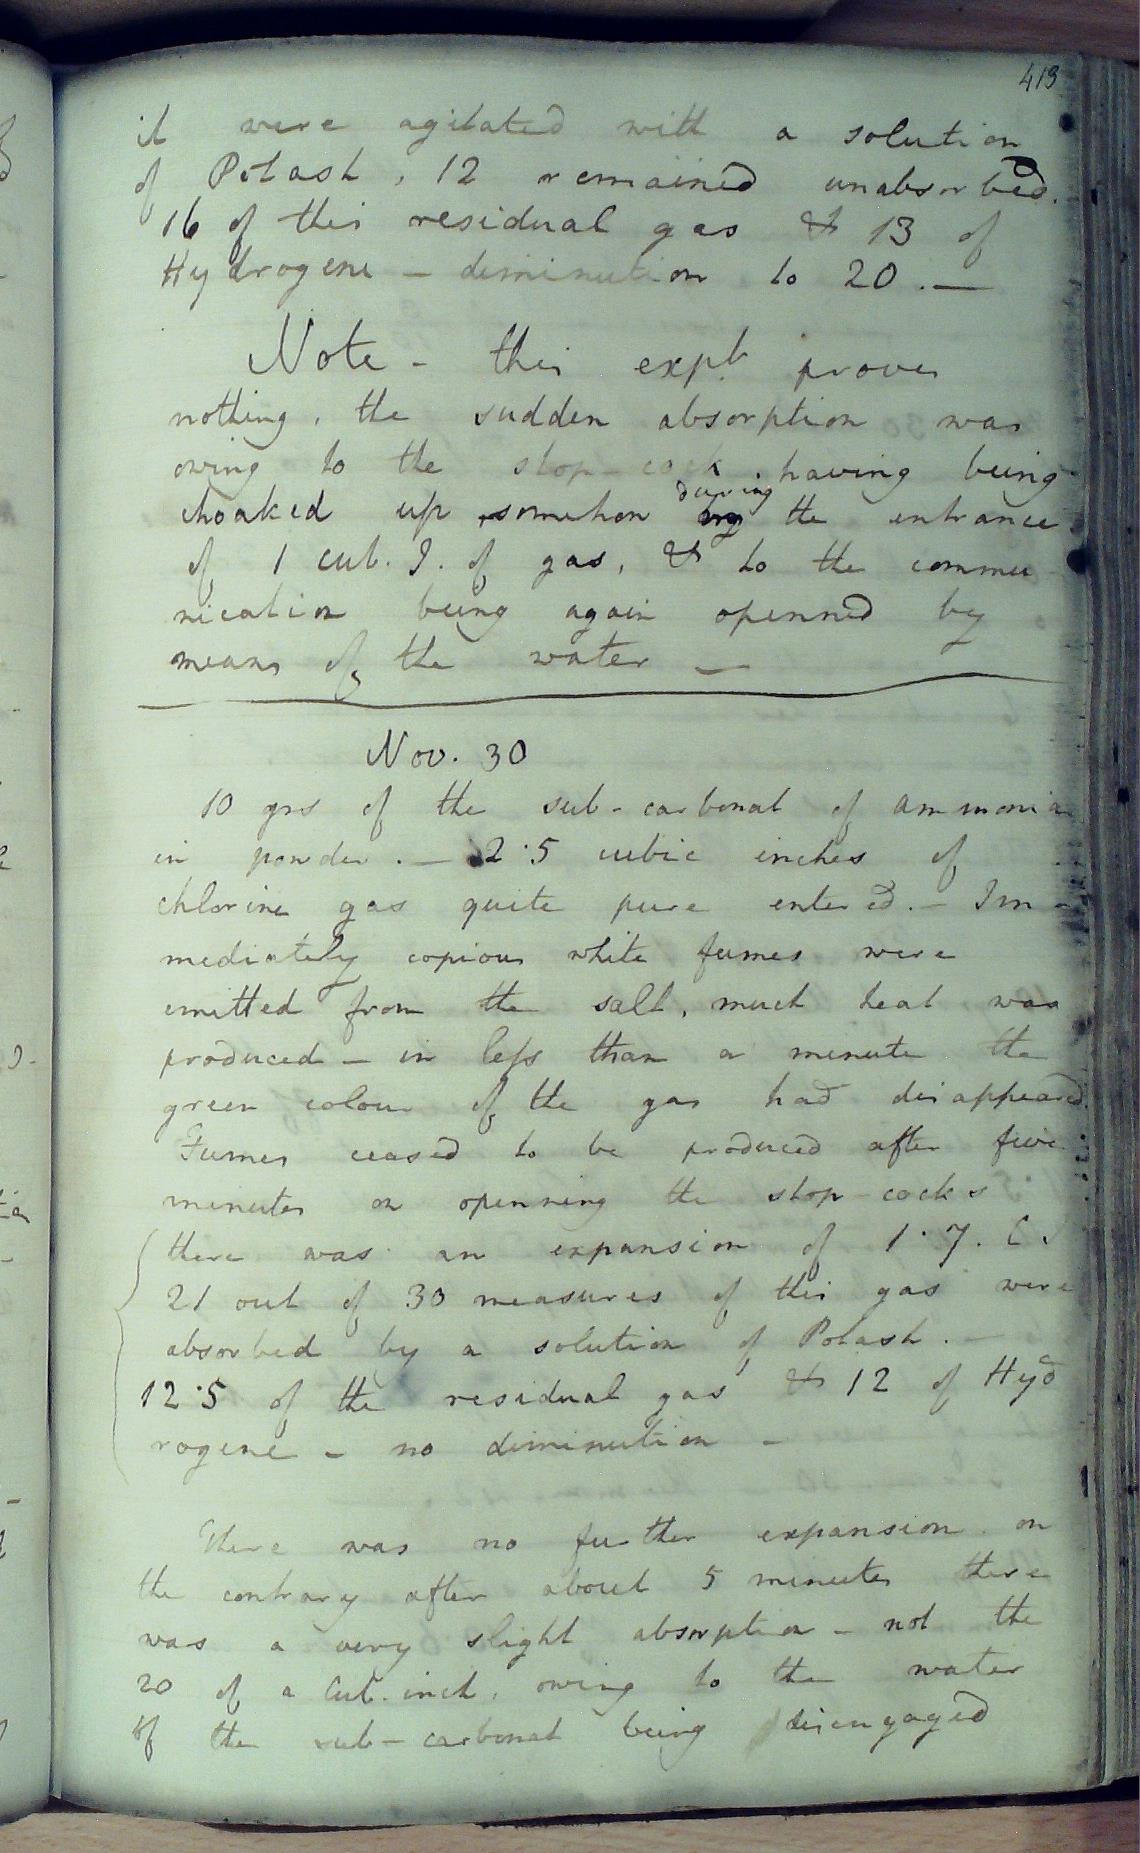 413
it were agitated with a solution
of Potash, 12 remained unabsorbed.
16 of this residual gas & 13 of
Hydrogene – diminution to 20. —
Note – this expt. proves
nothing, the sudden absorption was
owing to the stop-cock having being
choaked up somehow during the entrance
of 1 cub. I. of gas, & to the commu
nication being again openned by
means of the water —
Nov. 30
10 grs of the sub-carbonat of ammonia
in powder. — 2·5 cubic inches of
chlorine gas quite pure entered. – Im-
mediately copious white fumes were
emitted from the salt, much heat was
produced – in less than a minute the
green colour of the gas had disappeared
Fumes ceased to be produced after five
minutes on openning the stop-cocks
there was an expansion of 1·7. C.
21 out of 30 measures of this gas were
absorbed by a solution of Potash. –
12·5 of the residual gas & 12 of Hyd
rogene – no diminution –
There was no further expansion on
the contrary after about 5 minutes there
was a very slight absorption – not the
20 of a Cub. inch, owing to the water
of the sub-carbonat being disengaged